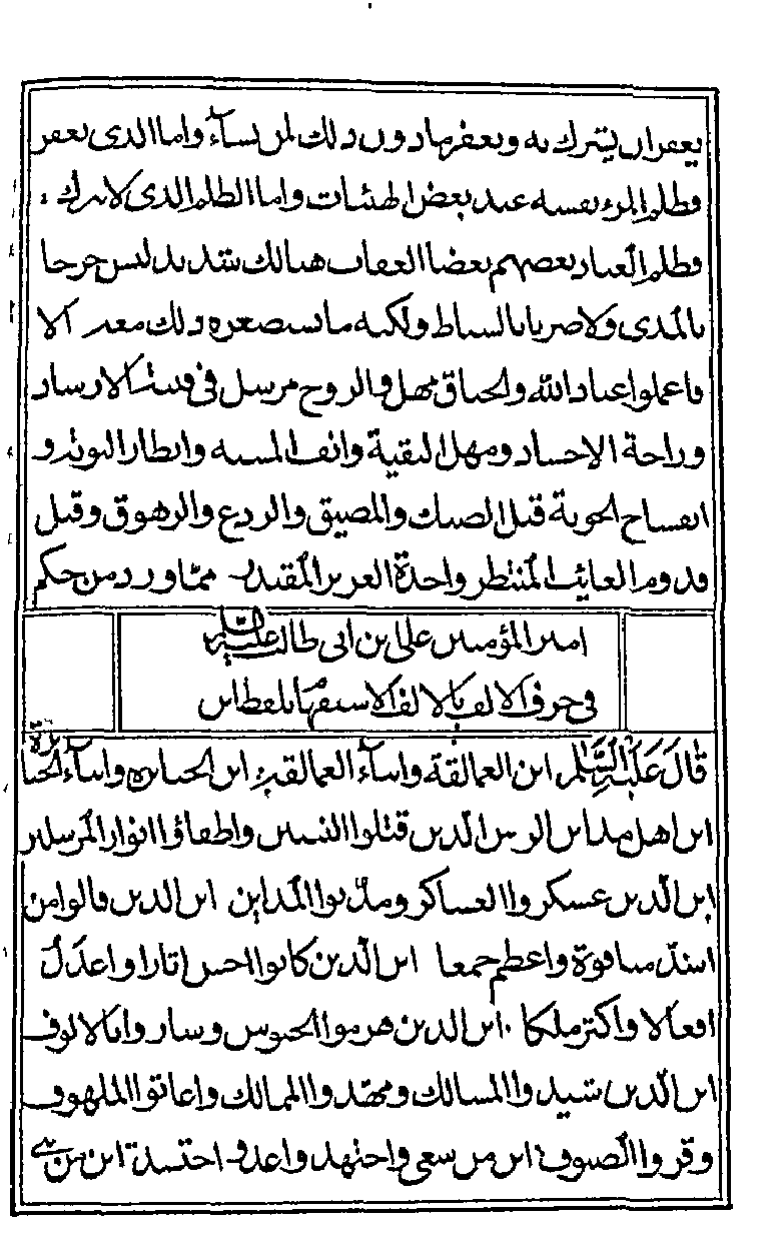 يغفر ان يشرك به ويغفر ما دون ذلك لمن يشآء واما الذى يغفر
فظلم المرء نفسه عند بعض الهنئات واما الظلم الذى لا يترك
فظلم العباد بعضهم بعضا العقاب هنالك شديد ليس جرحا
بالمدى ولا ضربا بالسياط ولكنه ما يستصغره ذلك معه الا
فاعملوا عباد الله والخناق مهمل والروح مرسل فى فينة الارشاد
وراحة الاجساد ومهل البقية وانف المشية وانظار التوبة و
انفساح الحوبة قبل الضنك والمضيق والردع والزهوق وقبل
قدوم الغائب المنتظر واخذة العزيز المقتدر مما ورد من حكم
امير المؤمنين على بن ابى طالب عليه السلام
فى حرف الالف بالالف الاستفهام بلفظ اين
قال عليه السلام اين العمالقة وابنآء العمالقة اين الجبابرة وابنآء الجبابرة
اين اهل مداين الرس الذين قتلوا النبيين واطفاؤا انوار المرسلين
اين الذين عسكروا العساكر ومدنوا المداين اين الذين قالوا من
اشد منا قوة واعظم جمعا اين الذين كانوا احسن اثارا واعدل
افعالا واكثر ملكا اين الذين هزموا الجيوش وساروا بالالوف
اين الذين شيدوا المسالك ومهدوا الممالك واغاثوا الملهوف
وقروا الضيوف اين من سعى واجتهد واعد واحتشد اين من بنى